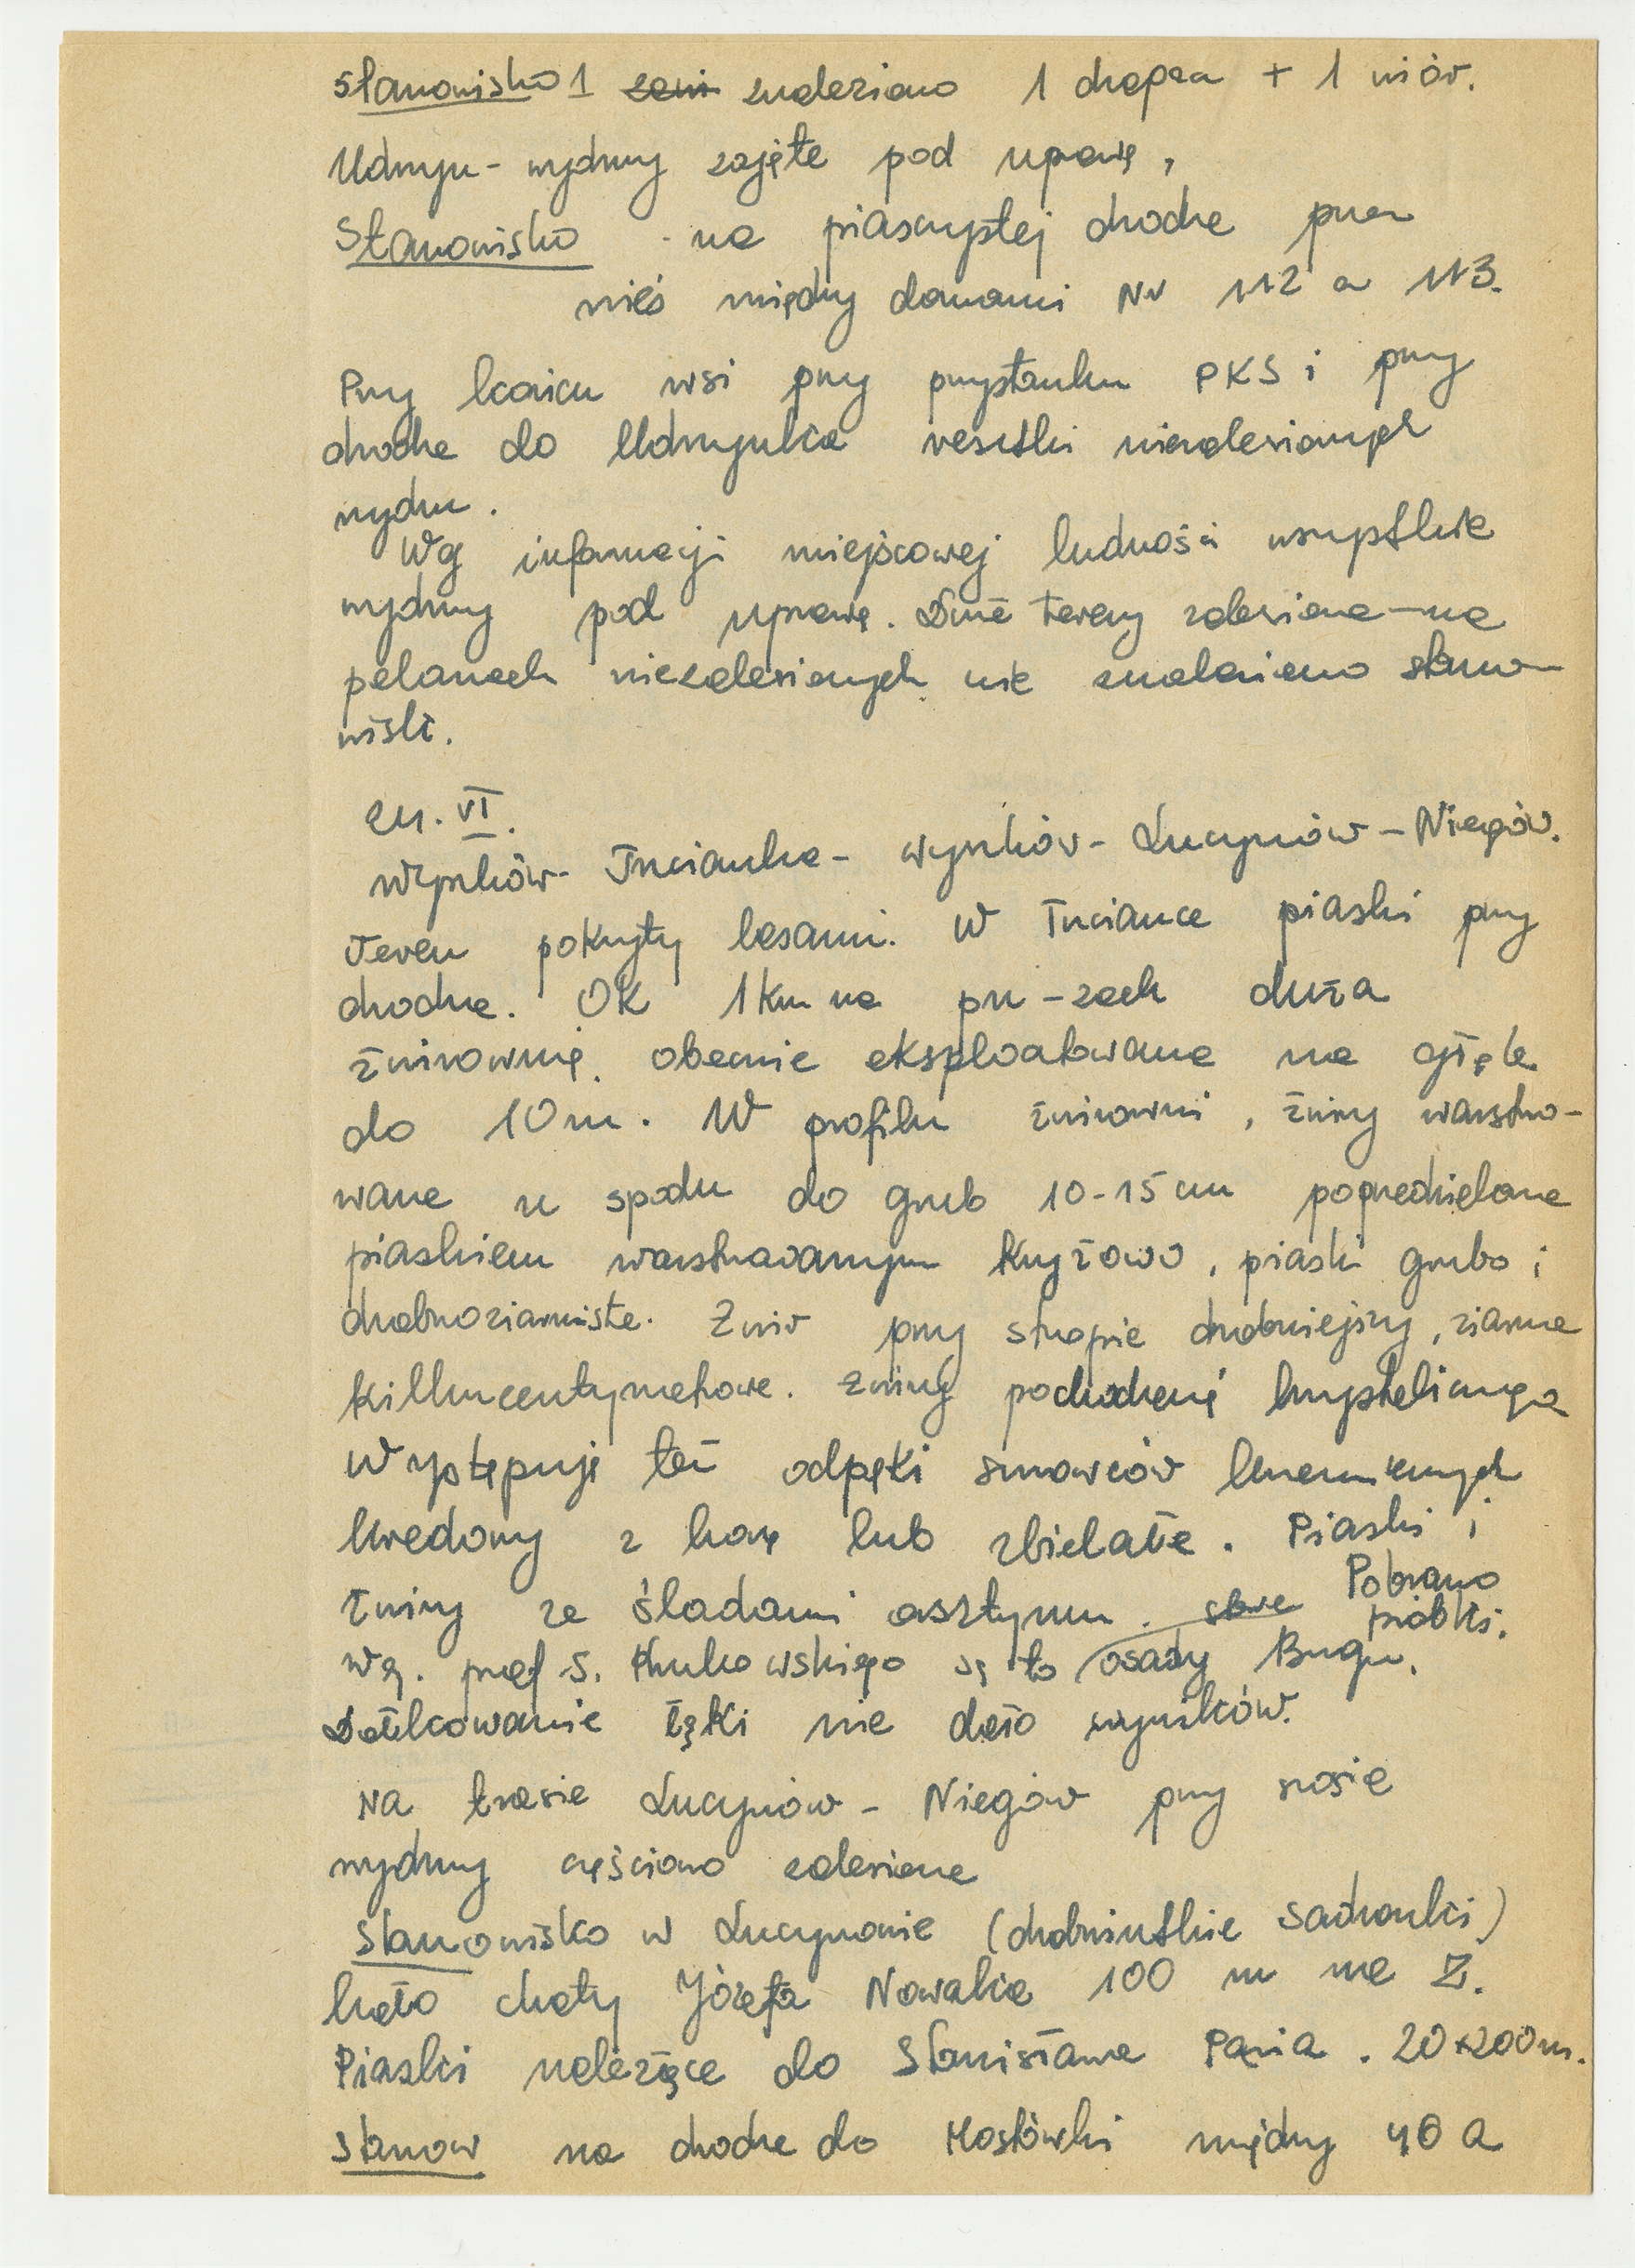 Stanowisko 1 znaleziono 1 drapacz + 1 wiór.
Udrzyn - wydmy zajęte pod uprawę,
Stanowisko - na piaszczystej drodze przez
wieś między domami Nr 112 a 113.
Przy końcu wsi przy przystanku PKS i przy
drodze do Udrzynka resztki niezalesionych
wydm.
Wg informacji miejscowej ludności wszystkie
wydmy pod uprawę. Duże tereny zalesione - na
polanach niezalesionych nie znaleziono stano-
wisk.
21. VI.
Wyszków - Trzcianka - Wyszków - Lucynów - Niegów.
Teren pokryty lasami. W Trzciance piaski przy
drodze. Ok 1 km na pn - zach duża
żwirownia, obecnie eksploatowana na głęb.
do 10 m. W profilu żwirowni, żwiry warstwo-
wane u spodu do grub 10-15 cm poprzedzielane
piaskiem warstwowanym krzyżowo, piaski grubo i
drobnoziarniste. Żwir przy stropie drobniejszy, ziarna
kilkucentymetrowe. Żwiry pochodzenia krystalicznego
Występują też odpadki surowców krzemiennych
kredowy z korą lub zbielałe. Piaski i
żwiry ze śladami orsztynu. Pobrano
próbki.
Wg. prof S. Żukowskiego są to osady Bugu.
Dołkowanie łąki nie dało wyników.
Na trasie Lucynów - Niegów przy szosie
wydmy częściowo zalesione
Stanowisko w Lucynowie (drobniutkie sadzonki)
koło chaty Józefa Nowaka 100 m na Z.
Piaski należące do Stanisława 20 x 200 m.
Stanow na drodze do Mostówki między 40 a